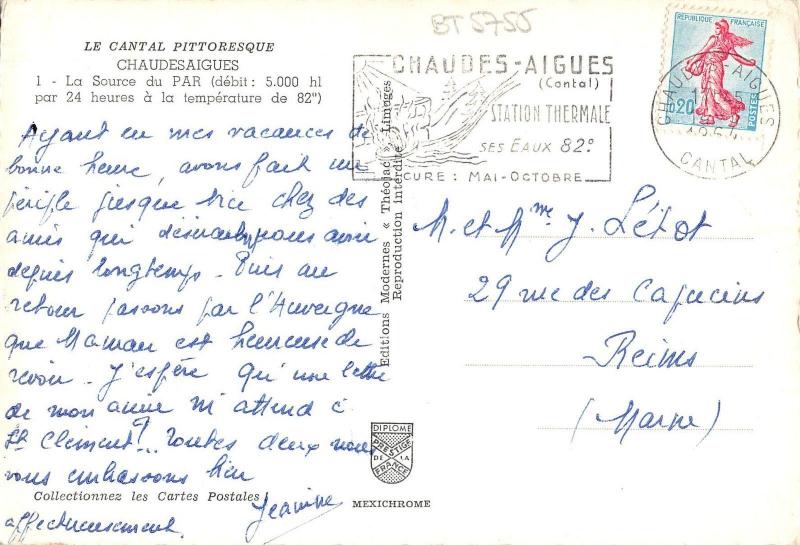 BT 5755
LE CANTAL PITTORESQUE
CHAUDESAIGUES
1 - La Source du PAR (débit : 5.000 hl
par 24 heures à la température de 82°)
CHAUDES-AIGUES
(Cantal)
STATION THERMALE
SES EAUX 82°
CURE : MAI-OCTOBRE
RÉPUBLIQUE FRANÇAISE
0,20
POSTES
CHAUDES-AIGUES
CANTAL
Ayant eu mes vacances de
bonne heure, avons fait un
périple jusque chez des
amis qui nous
depuis longtemps. Puis au
retour passons par l'Auvergne
que Maman est heureuse de
revoir. J'espère qu'une lettre
de mon amie m'attend à
St Clément ! Toutes deux nous
vous embrassons bien
affectueusement.
Jeanine
M. et Mme J. Létot
29 rue des Capucins
Reims
(Marne)
Editions Modernes « Théojac », Limoges
Reproduction Interdite
DIPLOME
PRESTIGE
DE LA
FRANCE
Collectionnez les Cartes Postales
MEXICHROME